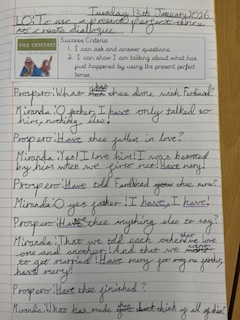 Tuesday 13th January 2026
LO: To use a present perfect tense
to create dialogue.
THE TEMPEST
Success Criteria
1. I can ask and answer questions.
2. I can show I am talking about what has
just happened by using the present perfect
tense.
Prospero: What have thee done with Ferdinand?
Miranda: O father, I have only talked to
him, nothing else!
Prospero: Have thee fallen in love?
Miranda: Yes! I love him! I was
by him when we first met! Have mercy.
Prospero: Have told Ferdinand
Miranda: O yes father! I have, I have!
Prospero: Have thee anything else to say?
Miranda: That we told each other we love
one and another! And that we
to get married! Have mercy for my father,
have mercy!
Prospero: Have thee finished?
Miranda: What has made thee think up all of this?